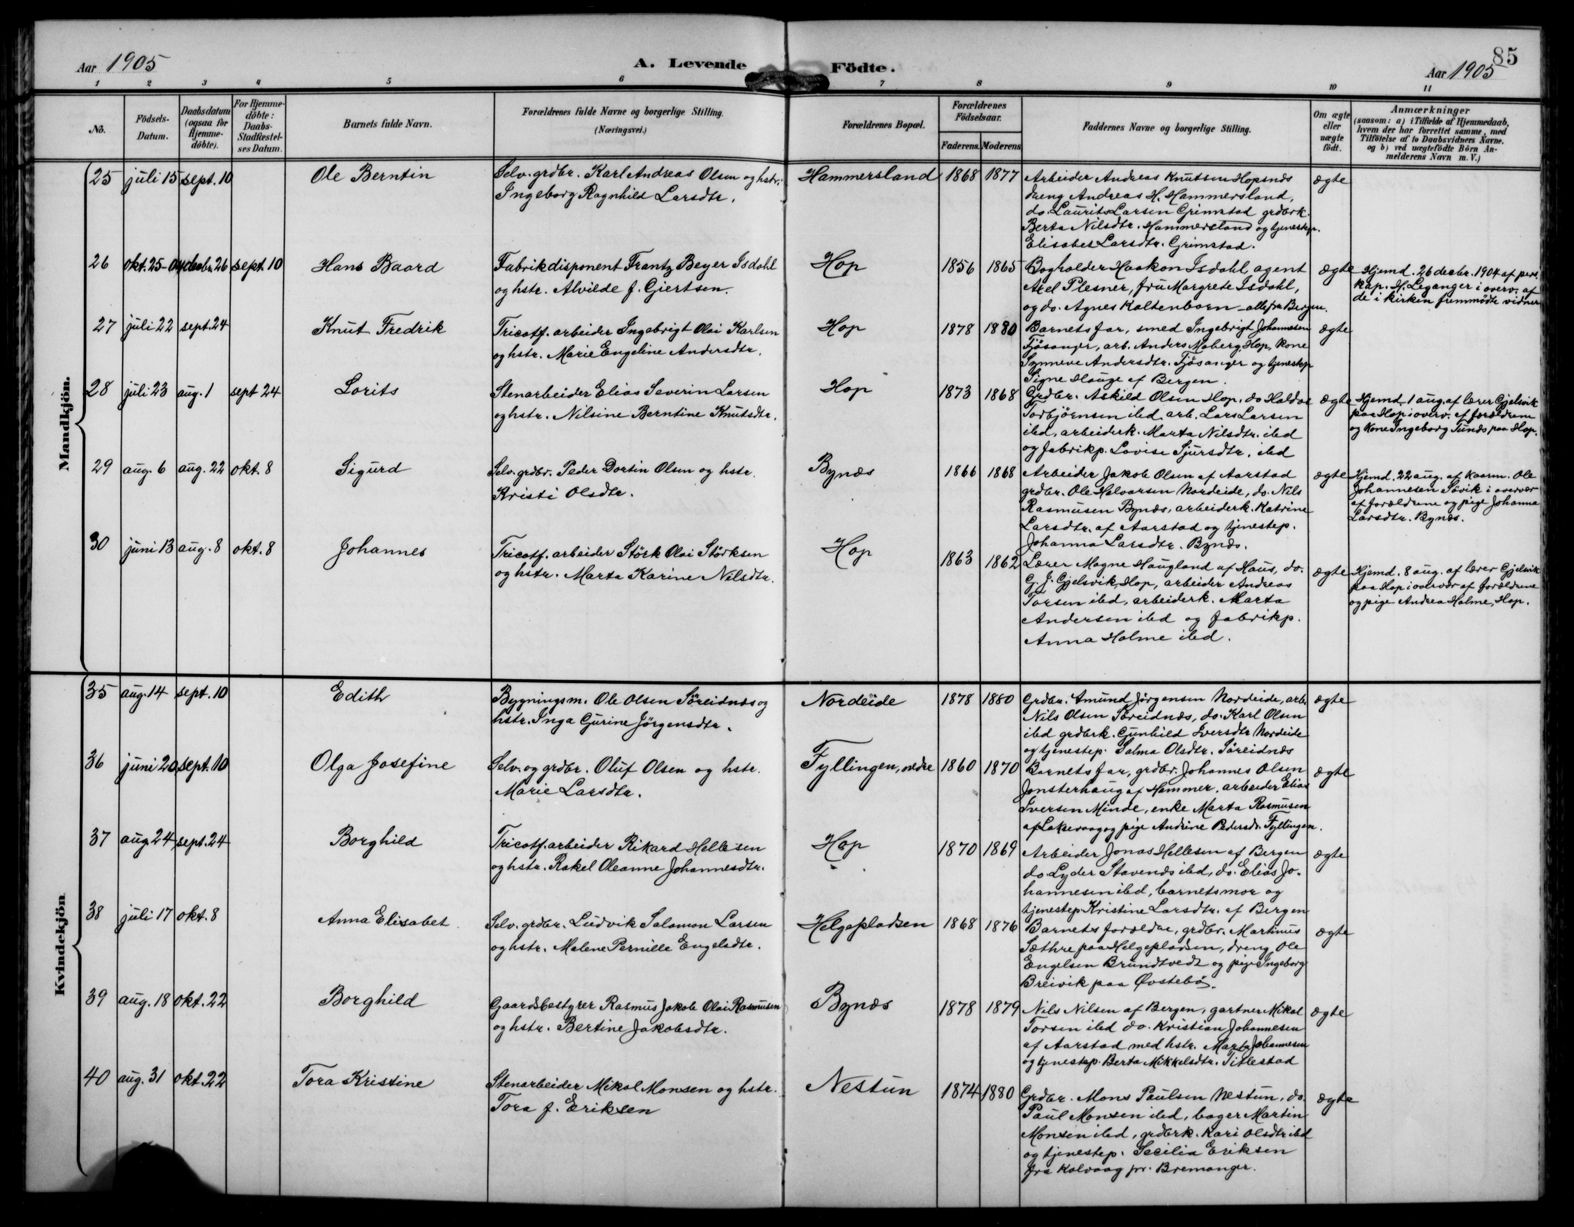 85
Aar 1905
A. Levende Fødte.
Aar 1905
1 2 3 4 5 6 7 8 9 10 11
No.
Födsels-
Datum.
Daabsdatum
(ogsaa for
Hjemme-
döbte).
For Hjemme-
döbte:
Daabs-
Stadfæstel-
ses Datum.
Barnets fulde Navn.
Forældrenes fulde Navne og borgerlige Stilling.
(Næringsvei.)
Forældrenes Bopæl.
Forældrenes
Födselsaar.
Faderens. Moderens.
Faddernes Navne og borgerlige Stilling.
Om ægte
eller
uægte
födt.
Anmærkninger
(saasom: a) i Tilfælde af Hjemmedaab,
hvem der har forrettet samme, med
Tilföielse af to Daabsvidners Navne.
og b) ved uægtefödte Börn An-
melderens Navn m. V.)
Mandkjön.
25 juli 15 sept. 10
Ole Berntin
Selv. grdbr. Karl Andreas Olsen og hstr.
Ingeborg Ragnhild Larsdtr.
Hammersland
1868 1877
Arbeider Andreas Knutsen Hopsnæs
dreng Andreas H. Hammersland,
do. Laurits Larsen Grimstad grdbrk.
Berta Nilsdtr. Hammersland og tjenestep.
Elisabet Larsdtr. Grimstad.
ægte
26 okt. 25-04 decbr. 26 sept. 10
Hans Baard
Fabrikdisponent Frantz Beyer Isdahl
og hstr. Alvilde f. Giertsen.
Hop
1856 1865
Bogholder Haakon Isdahl agent
Axel Plesner, fru Margrete Isdahl,
og do. Agnes Kaltenborn - alle fra Bergen.
ægte
Hjemd. 26 decbr. 1904 af pers.
kap. H. Leganger i overv. af
de i kirken fremmødte vidner
27 juli 22 sept. 24
Knut Fredrik
Tricotf. arbeider Ingebrigt Olai Karlsen
og hstr. Marie Engeline Andersdtr.
Hop
1878 1880
Barnets far, smed Ingebrigt Johannesen
Fjøsanger, arb. Anders Moberg, Hop, kone
Synneve Andersdtr. Fjøsanger og tjenestep.
Signe Hauge af Bergen.
ægte
28 juli 23 aug. 1 sept 24
Lorits
Stenarbeider Elias Severin Larsen
og hstr. Nilsine Berntine Knutsdtr.
Hop
1873 1868
Grdbr. Askild Olsen Hop, do Haldor
Torbjørnsen ibd, arb. Lars Larsen
ibd, arbeiderk. Marta Nilsdtr. ibd
og fabrikp. Lovise Sjursdtr. ibd
ægte
Hjemd. 1 aug. af lærer Gjelsvik
paa Hop i overv. af forældrene
og kone Ingeborg Tunæs paa Hop.
29 aug. 6 aug. 22 okt. 8
Sigurd
Selv. grdbr. Peder Dortin Olsen og hstr.
Kristi Olsdtr.
Bynæs
1866 1868
Arbeider Jakob Olsen af Aarstad
grdbr. Ole Halvorsen Nordeide, do. Nils
Rasmusen Bynæs, arbeiderk. Katrine
Larsdtr. af Aarstad og tjenestep.
Johanna Larsdtr. Bynæs.
ægte
Hjemd. 22 aug. af kaem. Ole
Johannesen Søvik i overvær
af forældrene og pige Johanna
Larsdtr. Bynæs.
30 juni 13 aug. 8 okt. 8
Johannes
Tricotf. arbeider Størk Olai Størksen
og hstr. Marta Karine Nilsdtr.
Hop
1863 1862
Lærer Mogne Haugland af Haus, do.
G. J. Gjelsvik, Hop, arbeider Andreas
Torsen ibd, arbeiderk. Marta
Andersen ibd og fabrikp.
Anna Holme ibd.
ægte
Hjemd. 8 aug. af lærer Gjelsvik
paa Hop i overvær af forældrene
og pige Andrea Holme, Hop.
Kvindekjön
35 aug. 14 sept. 10
Edith
Bygningsm. Ole Olsen Søreidnæs og
hstr. Inga Gurine Jørgensdtr.
Nordeide
1878 1880
Grdbr. Amund Jørgensen Nordeide, arb.
Nils Olsen Søreidnæs, do. Karl Olsen
ibd grdbrk. Gunhild Iversdtr Nordeide
og tjenestep. Salma Olsdtr. Søreidnæs
ægte
36 juni 20 sept. 10
Olga Josefine
Selv. og grdbr. Oluf Olsen og hstr.
Marie Larsdtr.
Fyllingen, nedre
1860 1870
Barnets far, grdbr. Johannes Olsen
Jonsterhaug af Hammer, arbeider Elias
Iversen Minde, enke Marta Rasmusen
af Laksevaag og pige Andrine Pedersdr. Fyllingen.
ægte
37 aug 24 sept. 24
Borghild
Tricotf. arbeider Rikard Hellesen
og hstr. Rakel Oleanne Johannesdtr.
Hop
1870 1869
Arbeider Jonas Hellesen af Bergen
do Lyder Stavenæs ibd, do. Elias Jo-
hannesen ibd, barnets mor og
tjenestep Kristine Larsdtr. af Bergen
ægte
38 juli 17 okt. 8
Anna Elisabet
Selv. grdbr. Ludvik Salomon Larsen
og hstr. Malene Pernille Engelsdtr.
Helgepladsen
1868 1876
Barnets forældre, grdbr. Martinus
Sæthre paa Helgepladsen, dreng Ole
Engelsen Brundtvedt og pige Ingeborg
Breivik paa Øvstebø.
ægte
39 aug. 18 okt. 22
Borghild
Gaardsbestyrer Rasmus Jakob Olai Rasmusen
og hstr. Bertine Jakobsdtr.
Bynæs
1878 1879
Nils Nilsen af Bergen, gartner Mikal
Torsen ibd do. Kristian Johannesen
af Aarstad med hstr. Marta Johannesen
og tjenestep. Berta Mikkelsdtr. Titlestad
ægte
40 aug. 31 okt. 22
Tora Kristine
Stenarbeider Mikal Monsen og hstr.
Tora f. Eriksen
Nestun
1874 1880
Grdbr. Mons Paulsen Nestun, do.
Paul Monsen ibd, bager Martin
Monsen ibd, grdbrk. Kari Olsdtr ibd
og tjenestep. Secilia Eriksen
fra Kalvaag pr. Bremanger.
ægte